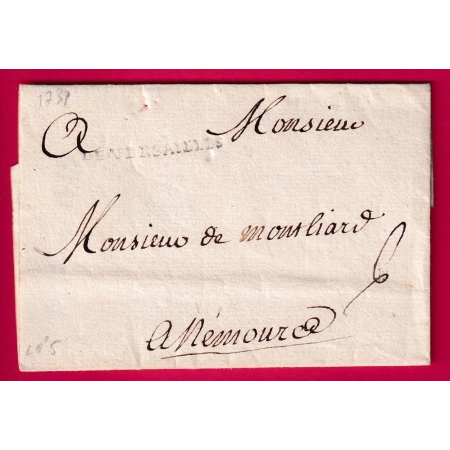 1731
A Monsieur
DE VERSAILLES
Monsieur de montliard
6
A Némours
n°5